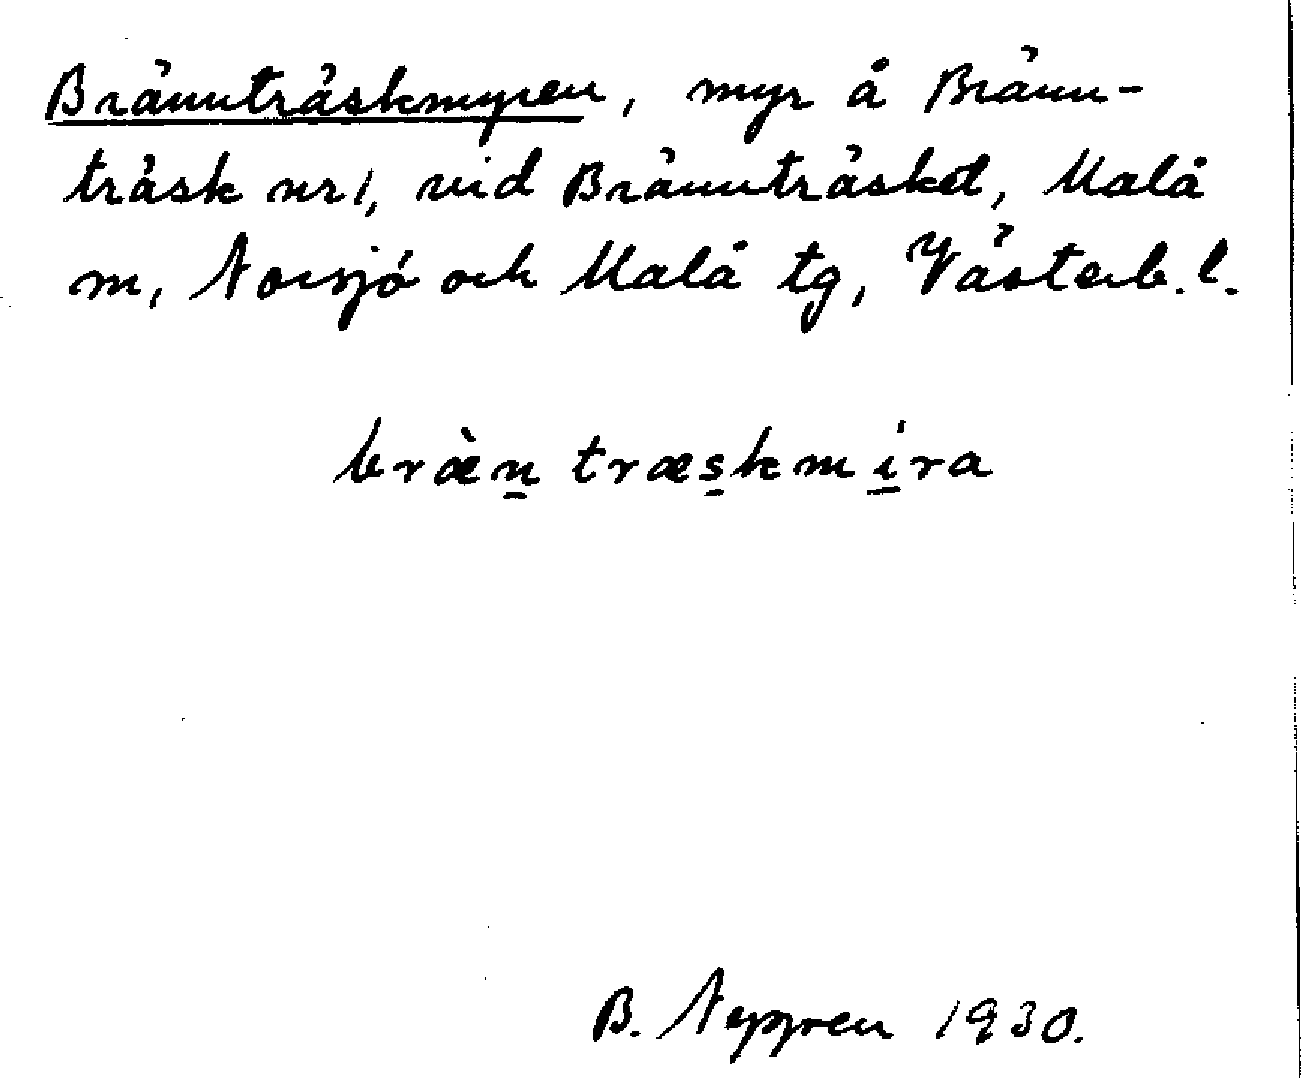 Brännträskmyren, myr å Bränn-
träsk nr 1, vid Brännträsket, Malå
m, Norsjö och Malå tg, Västerb. l.
bræ̀n̲ træs̲kmi̲ra
B. Neppren 1930.